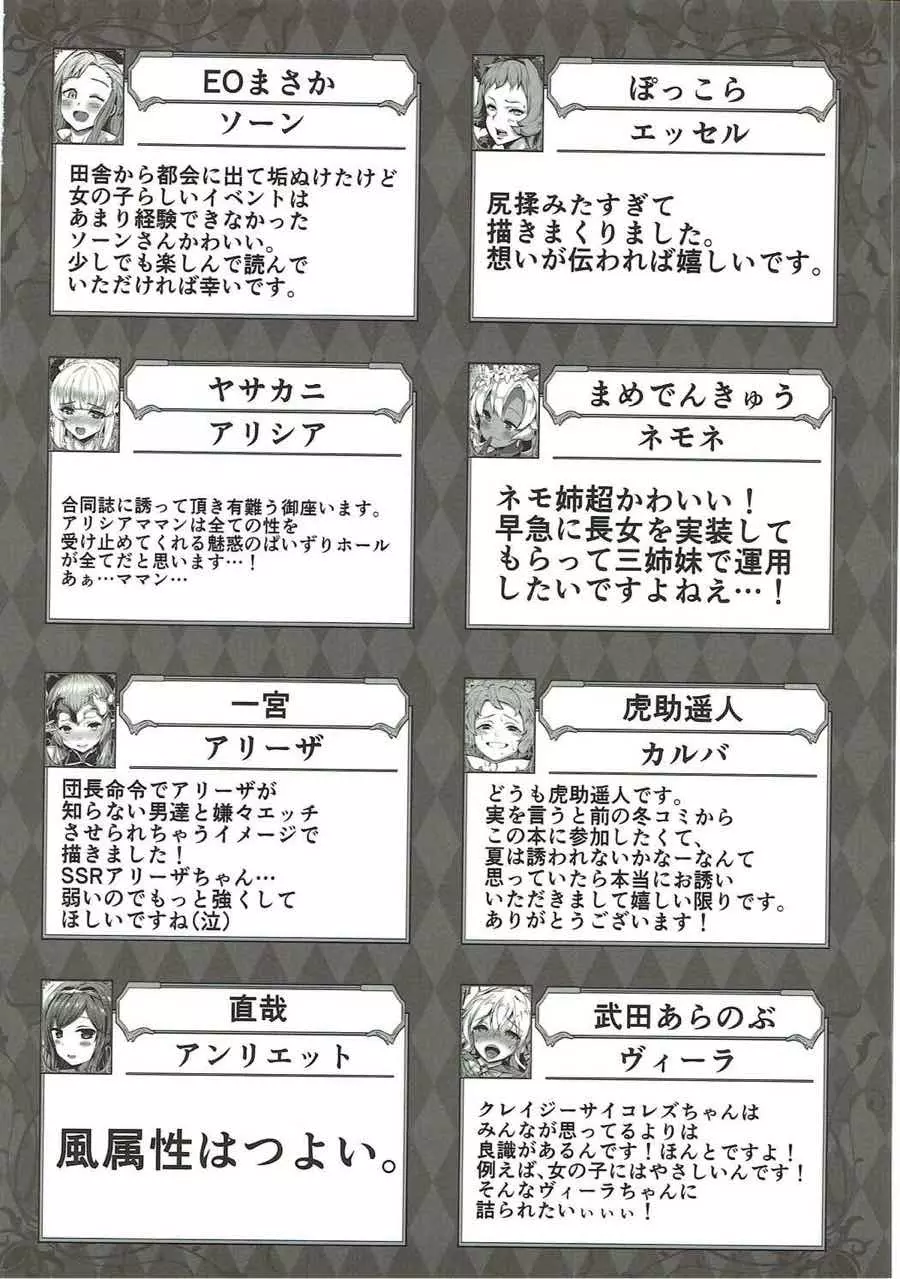 EOまさか
ソーン
田舎から都会に出て垢ぬけたけど
女の子らしいイベントは
あまり経験できなかった
ソーンさんかわいい。
少しでも楽しんで読んで
いただければ幸いです。
ぽっこら
エッセル
尻揉みたすぎて
描きまくりました。
想いが伝われば嬉しいです。
ヤサカニ
アリシア
合同誌に誘って頂き有難う御座います。
アリシアママンは全ての性を
受け止めてくれる魅惑のぱいずりホール
が全てだと思います…！
あぁ…ママン…
まめでんきゅう
ネモネ
ネモ姉超かわいい！
早急に長女を実装して
もらって三姉妹で運用
したいですよねえ…！
一宮
アリーザ
団長命令でアリーザが
知らない男達と嫌々エッチ
させられちゃうイメージで
描きました！
SSRアリーザちゃん…
弱いのでもっと強くして
ほしいですね（泣）
虎助遥人
カルバ
どうも虎助遥人です。
実を言うと前の冬コミから
この本に参加したくて、
夏は誘われないかなーなんて
思っていたら本当にお誘い
いただきまして嬉しい限りです。
ありがとうございます！
直哉
アンリエット
風属性はつよい。
武田あらのぶ
ヴィーラ
クレイジーサイコレズちゃんは
みんなが思ってるよりは
良識があるんです！ほんとですよ！
例えば、女の子にはやさしいんです！
そんなヴィーラちゃんに
詰られたいぃぃぃ！